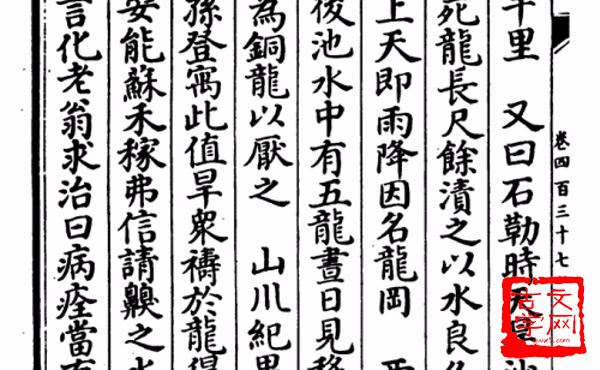 卷四百三十七
千里　又曰石勒時天旱
死龍長尺餘漬之以水良久
上天即雨降因名龍岡
後池水中有五龍晝日見移
為銅龍以厭之　山川紀異
孫登寓此值旱衆禱於龍得
安能蘇禾稼弗信請齅之水
言化老翁求治曰病痊當有
古文字网